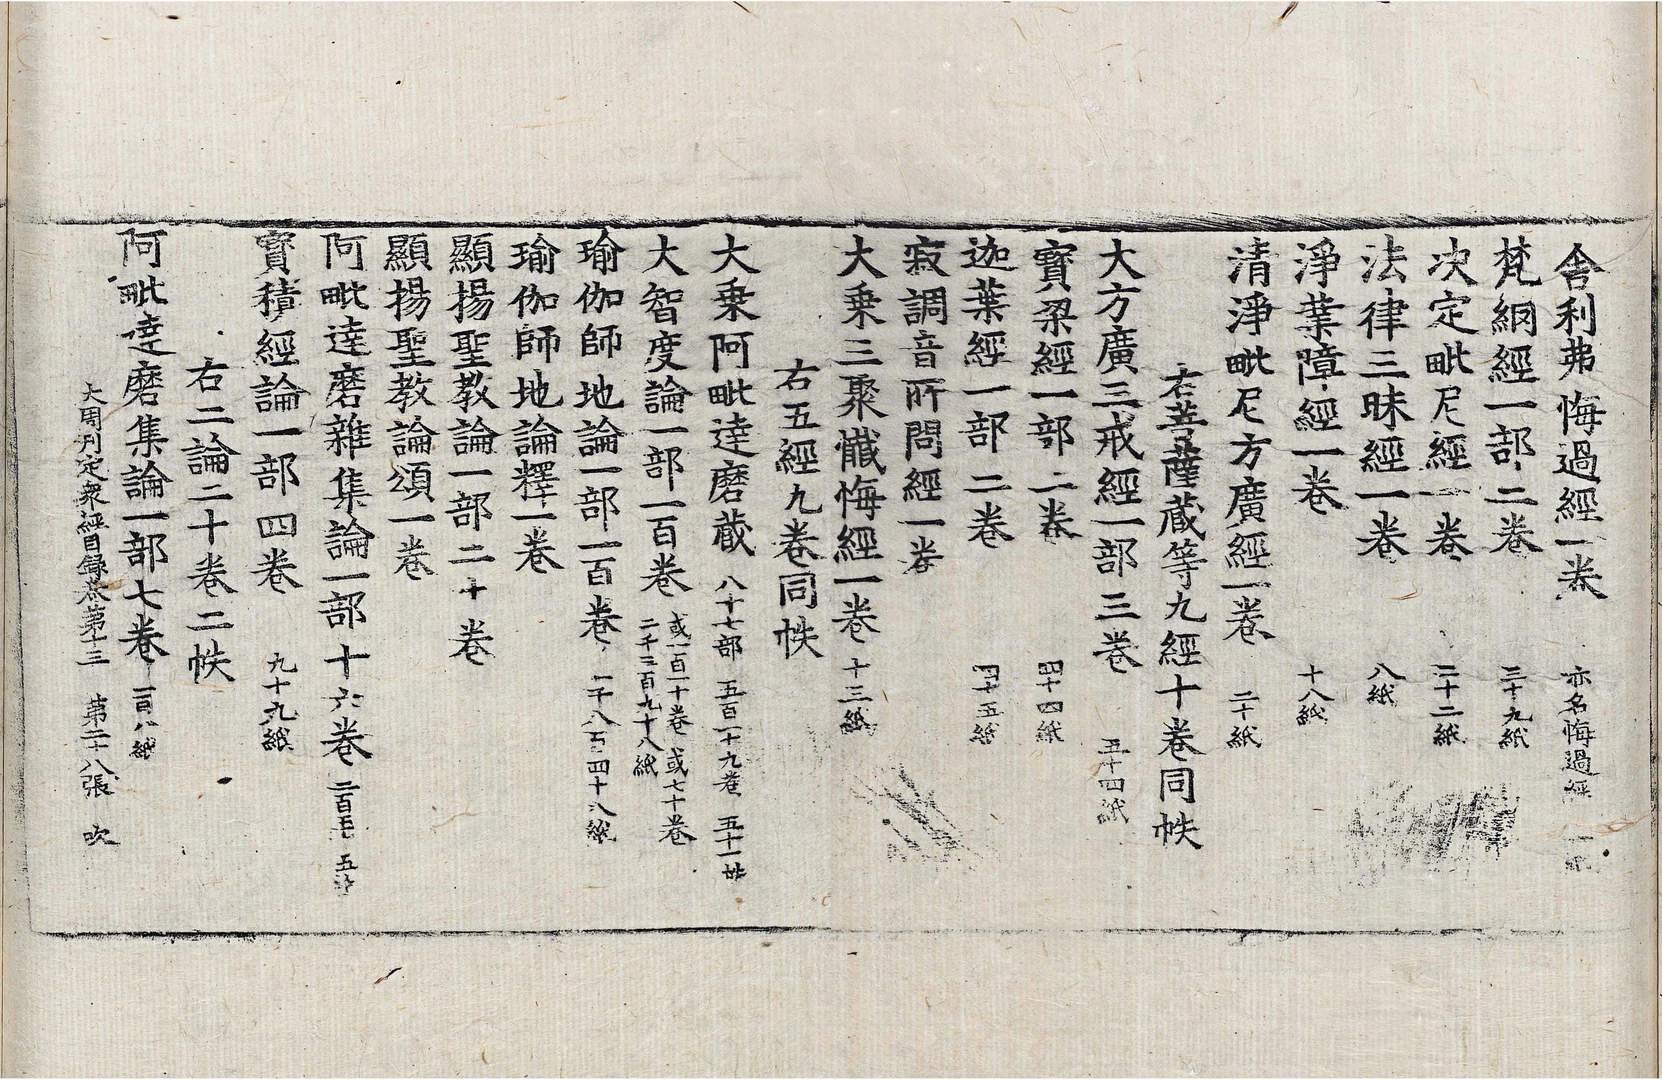 舍利弗悔過經一卷 亦名悔過經
梵網經一部二卷 三十九紙
决定毗尼經一卷 二十二紙
法律三昧經一卷 八紙
淨業障經一卷 十八紙
清淨毗尼方廣經一卷 二十紙
右菩薩蔵等九經十卷同帙
大方廣三戒經一部三卷 五十四紙
寳梁經一部二卷 四十四紙
迦葉經一部二卷 四十五紙
寂調音所問經一卷
大乗三聚懴悔經一卷 十三紙
右五經九卷同帙
大乗阿毗達磨蔵 八十七部 五百一十九卷 五十一帙
大智度論一部一百卷 或一百一十卷 或七十卷
二千三百九十八紙
瑜伽師地論一部一百卷 一千八百四十八紙
瑜伽師地論釋一卷
顯揚聖教論一部二十卷
顯揚聖教論頌一卷
阿毗達磨雜集論一部十六卷 二百五十五紙
寳積經論一部四卷 九十九紙
右二論二十卷二帙
阿毗達磨集論一部七卷 一百八紙
大周刋定衆經目録卷第十三 第二十八張 吹